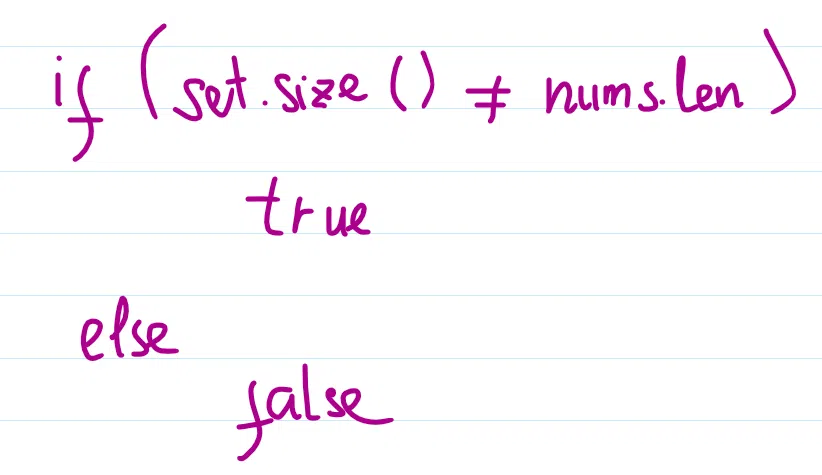 if (set.size() ≠ nums.len)
true
else
false